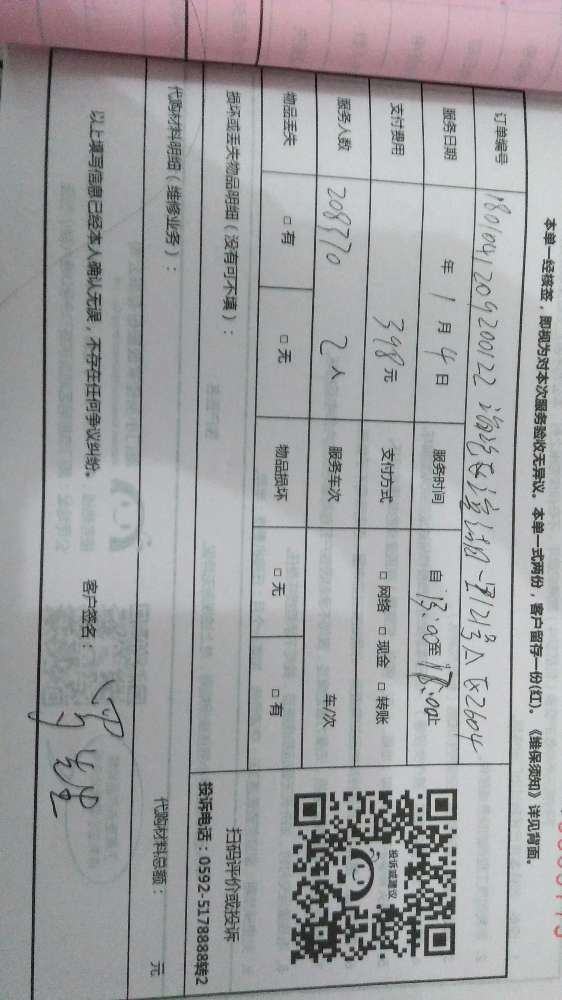 本单一经核签，即视为对本次服务验收无异议。本单一式两份，客户留存一份(红)。《维保须知》详见背面。
订单编号 1801041209200122 湖一里121号 2604
服务日期 年 1 月 4 日 服务时间 自 13:00至 17:00止
支付费用 398元 支付方式 □ 网络 □ 现金 □ 转账
服务人数 208370 2 人 服务车次 车/次
物品丢失 □ 有 □ 无 物品损坏 □ 无 □ 有
投诉或建议
扫码评价或投诉
投诉电话：0592-5178888转2
损坏或丢失物品明细（没有可不填）：
代购材料明细（维修业务）： 代购材料总额： 元
以上填写信息已经本人确认无误，不存在任何争议纠纷。 客户签名：